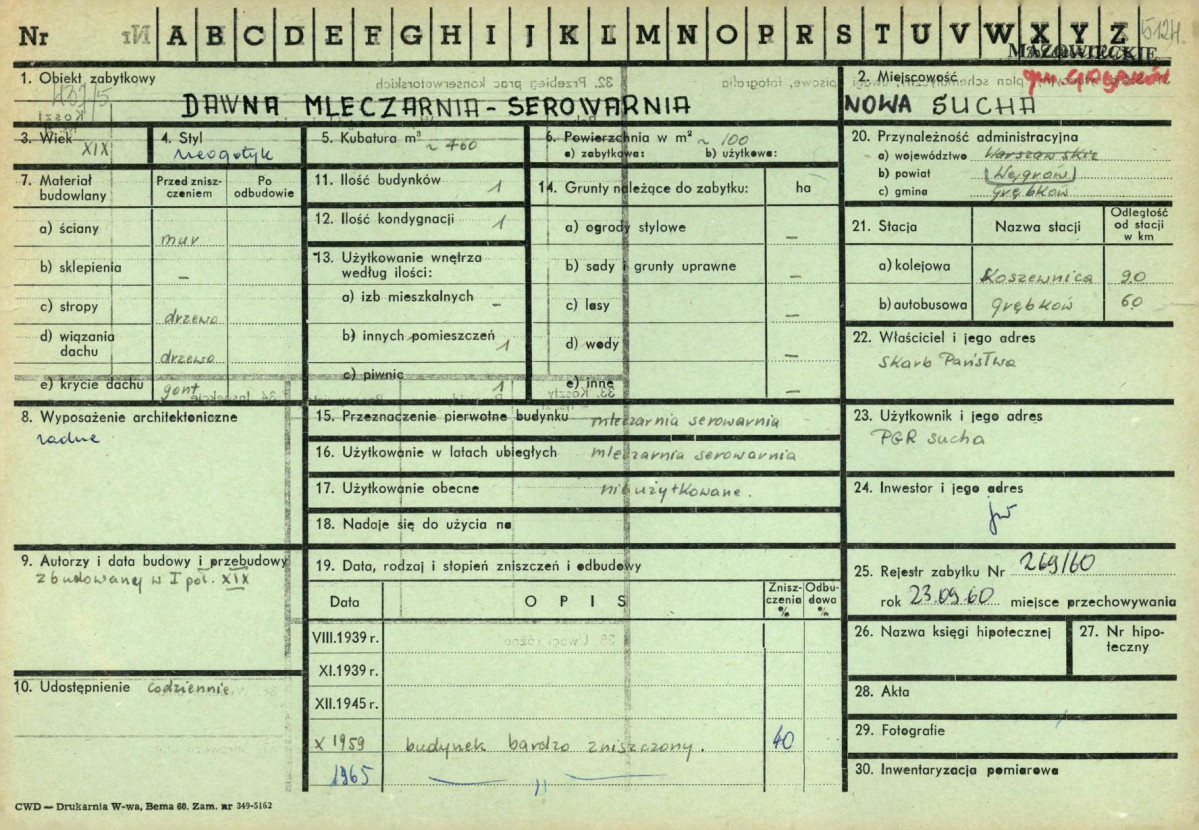 Nr A B C D E F G H I J K L M N O P R S T U V W X Y Z 5124.
MAZOWIECKIE
1. Obiekt zabytkowy
DAWNA MLECZARNIA - SEROWARNIA
2. Miejscowość
NOWA SUCHA
3. Wiek XIX
4. Styl neogotyk
5. Kubatura m³ ~ 460
6. Powierzchnia w m² ~ 100
a) zabytkowa: b) użytkowa:
7. Materiał budowlany
Przed zniszczeniem
Po odbudowie
a) ściany mur
b) sklepienia –
c) stropy drzewo
d) wiązania dachu drzewo
e) krycie dachu gont
8. Wyposażenie architektoniczne
żadne
9. Autorzy i data budowy i przebudowy
zbudowany w I poł. XIX
10. Udostępnienie codziennie
11. Ilość budynków 1
12. Ilość kondygnacji 1
13. Użytkowanie wnętrza według ilości:
a) izb mieszkalnych –
b) innych pomieszczeń 1
c) piwnic 1
14. Grunty należące do zabytku: ha
a) ogrody stylowe –
b) sady i grunty uprawne –
c) lasy –
d) wody –
e) inne –
15. Przeznaczenie pierwotne budynku mleczarnia serowarnia
16. Użytkowanie w latach ubiegłych mleczarnia serowarnia
17. Użytkowanie obecne nieużytkowane.
18. Nadaje się do użycia na
19. Data, rodzaj i stopień zniszczeń i odbudowy
Data OPIS Zniszczenia % Odbudowa %
VIII.1939 r.
XI.1939 r.
XII.1945 r.
X 1959 budynek bardzo zniszczony. 40
1965 — " —
20. Przynależność administracyjna
a) województwo Warszawskie
b) powiat Węgrów
c) gmina Grębków
21. Stacja Nazwa stacji Odległość od stacji w km
a) kolejowa Koszewnica 20
b) autobusowa Grębków 60
22. Właściciel i jego adres
Skarb Państwa
23. Użytkownik i jego adres
PGR Sucha
24. Inwestor i jego adres
jw
25. Rejestr zabytku Nr 269/60
rok 23.09.60 miejsce przechowywania
26. Nazwa księgi hipotecznej
27. Nr hipoteczny
28. Akta
29. Fotografie
30. Inwentaryzacja pomiarowa
CWD — Drukarnia W-wa, Bema 60. Zam. nr 349-5162